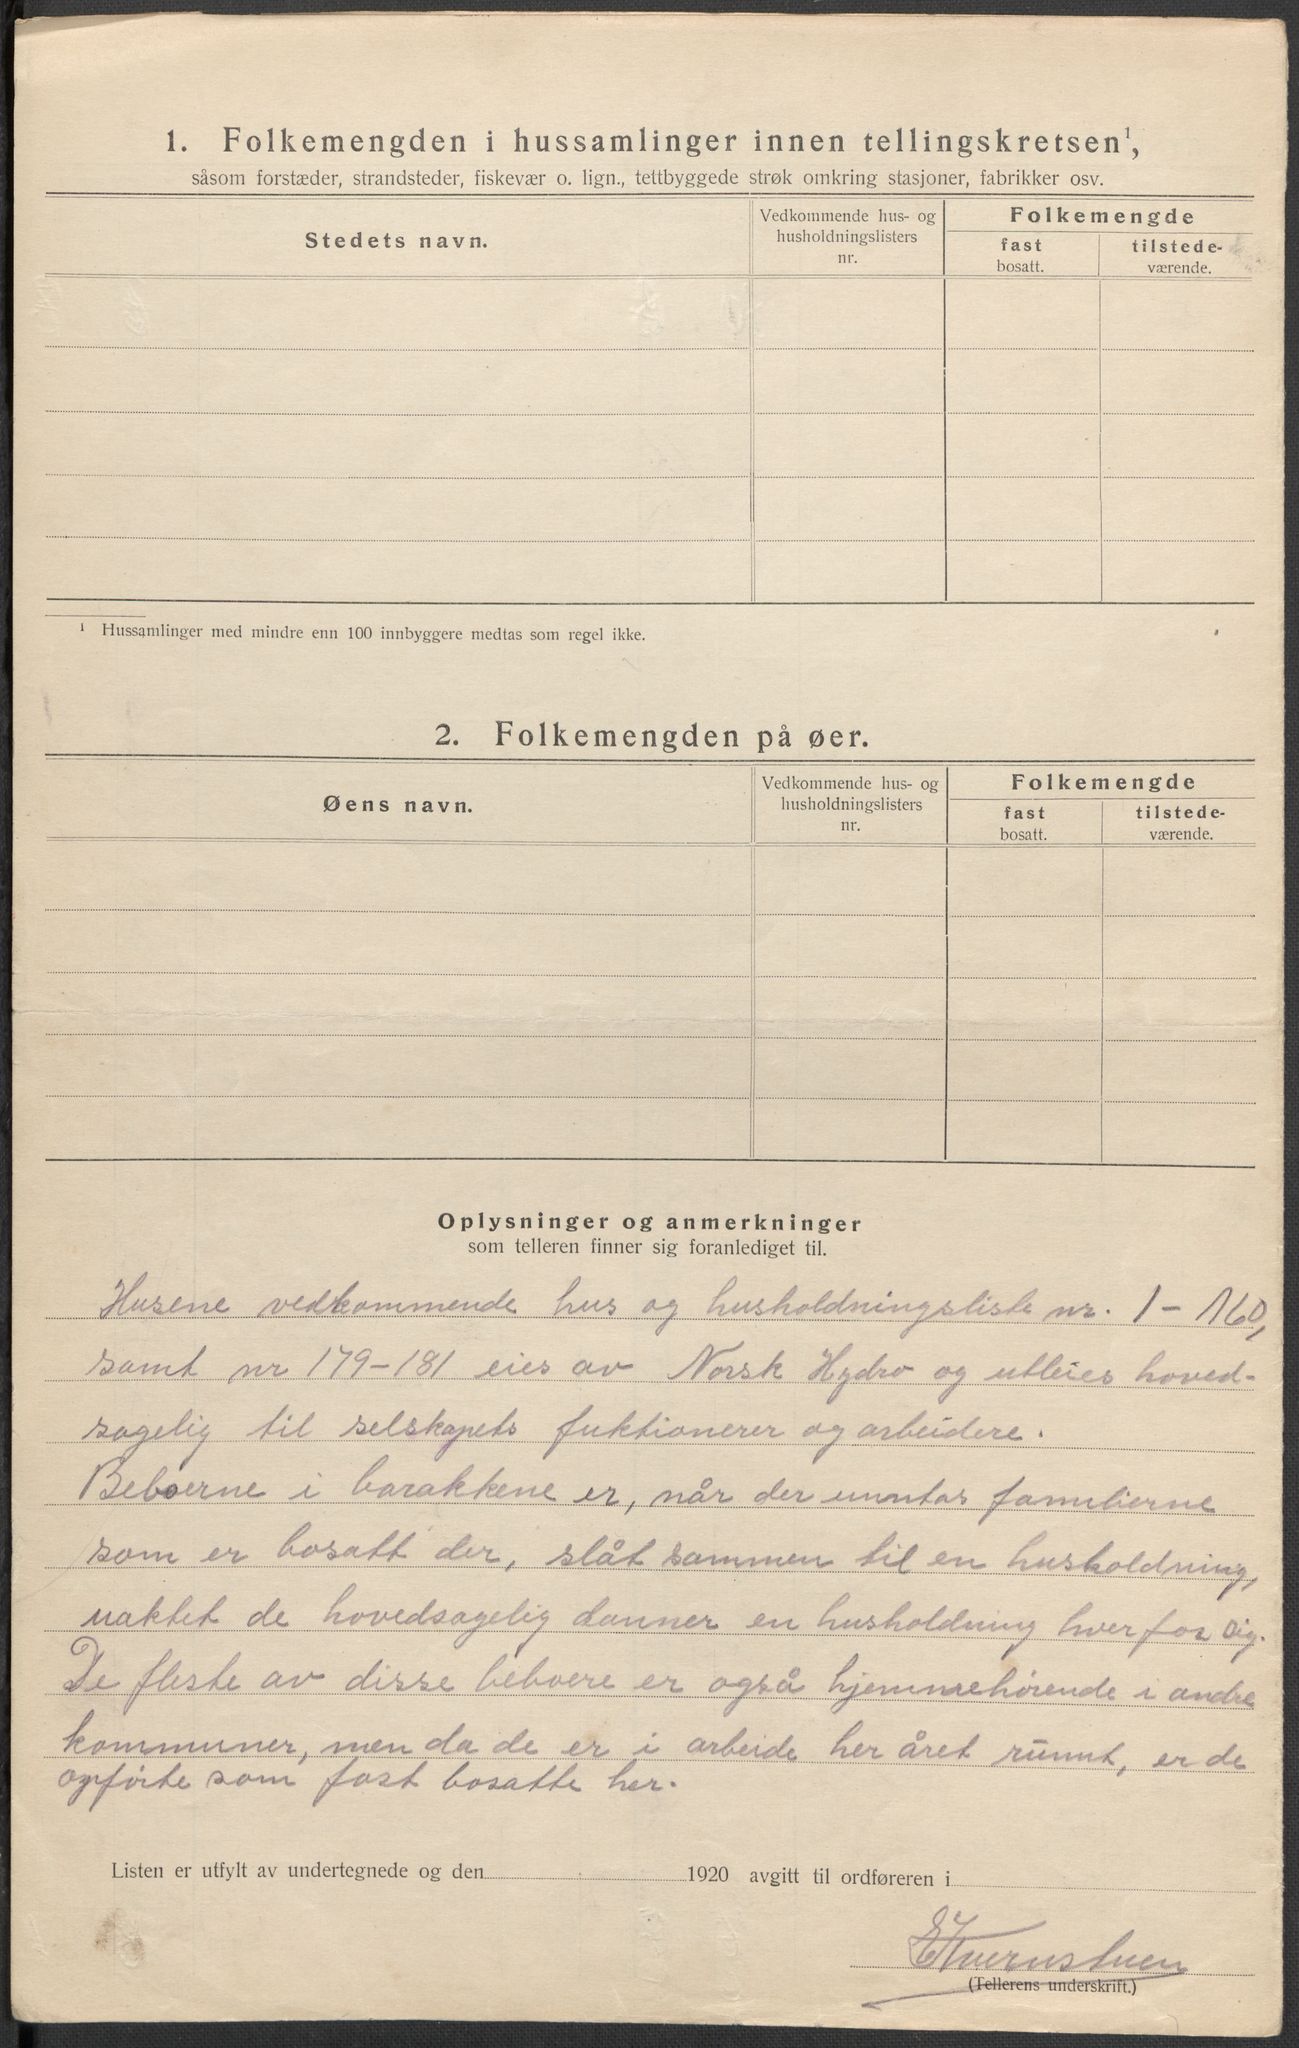 1. Folkemengden i hussamlinger innen tellingskretsen¹,
såsom forstæder, strandsteder, fiskevær o. lign., tettbyggede strøk omkring stasjoner, fabrikker osv.
Stedets navn.
Vedkommende hus- og
husholdningslisters
nr.
Folkemengde
fast
bosatt.
tilstede-
værende.
¹ Hussamlinger med mindre enn 100 innbyggere medtas som regel ikke.
2. Folkemengden på øer.
Øens navn.
Vedkommende hus- og
husholdningslisters
nr.
Folkemengde
fast
bosatt.
tilstede-
værende.
Oplysninger og anmerkninger
som telleren finner sig foranlediget til.
Husene vedkommende hus og husholdningsliste nr. 1 - 160,
samt nr 179-181 eies av Norsk Hydro og utleies hoved-
sagelig til selskapets fuktionerer og arbeidere.
Beboerne i barakkene er, når der unntas familierne
som er bosatt der, slåt sammen til en husholdning,
uaktet de hovedsagelig danner en husholdning hver for sig.
De fleste av disse beboere er også hjemmehørende i andre
kommuner, men da de er i arbeide her året runnt, er de
opførte som fast bosatte her.
Listen er utfylt av undertegnede og den 1920 avgitt til ordføreren i
(Tellerens underskrift.)